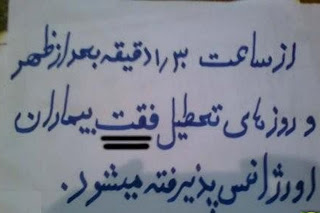 از ساعت ۱٫۳۰ دقیقه بعد از ظهر
و روزهای تحطیل فقت بیماران
اورژانس پذیرفته میشود.